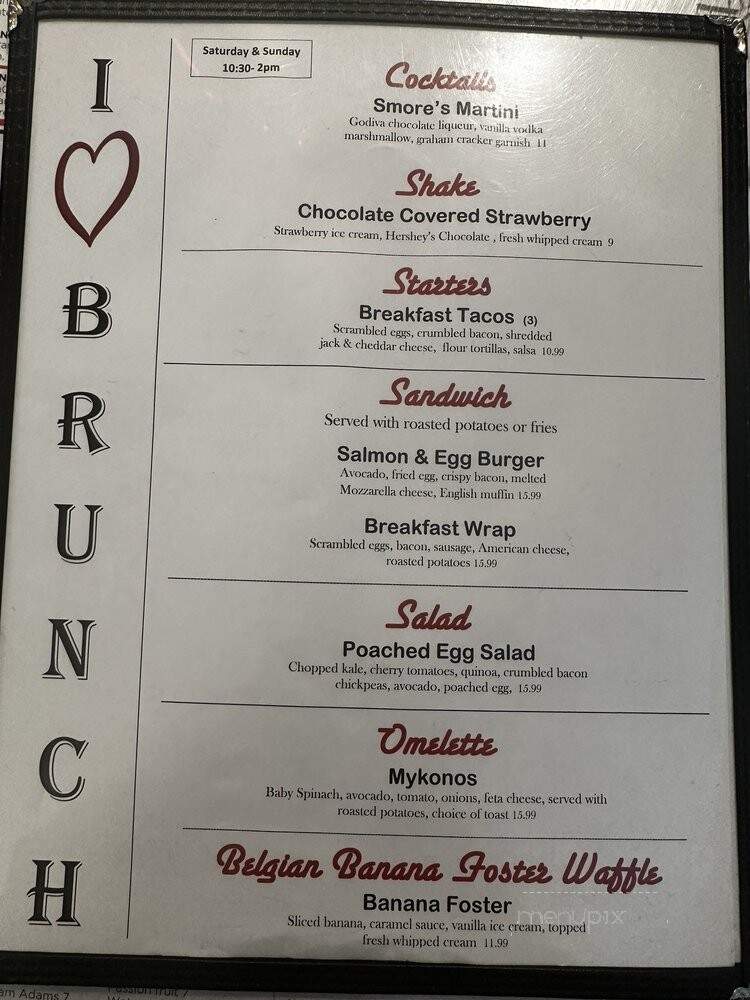 Saturday & Sunday
10:30- 2pm
I
B
R
U
N
C
H
Cocktails
Smore's Martini
Godiva chocolate liqueur, vanilla vodka
marshmallow, graham cracker garnish 11
Shake
Chocolate Covered Strawberry
Strawberry ice cream, Hershey's Chocolate , fresh whipped cream 9
Starters
Breakfast Tacos (3)
Scrambled eggs, crumbled bacon, shredded
jack & cheddar cheese, flour tortillas, salsa 10.99
Sandwich
Served with roasted potatoes or fries
Salmon & Egg Burger
Avocado, fried egg, crispy bacon, melted
Mozzarella cheese, English muffin 15.99
Breakfast Wrap
Scrambled eggs, bacon, sausage, American cheese,
roasted potatoes 15.99
Salad
Poached Egg Salad
Chopped kale, cherry tomatoes, quinoa, crumbled bacon
chickpeas, avocado, poached egg, 15.99
Omelette
Mykonos
Baby Spinach, avocado, tomato, onions, feta cheese, served with
roasted potatoes, choice of toast 15.99
Belgian Banana Foster Waffle
Banana Foster
Sliced banana, caramel sauce, vanilla ice cream, topped
fresh whipped cream 11.99
menupix
Adams 7